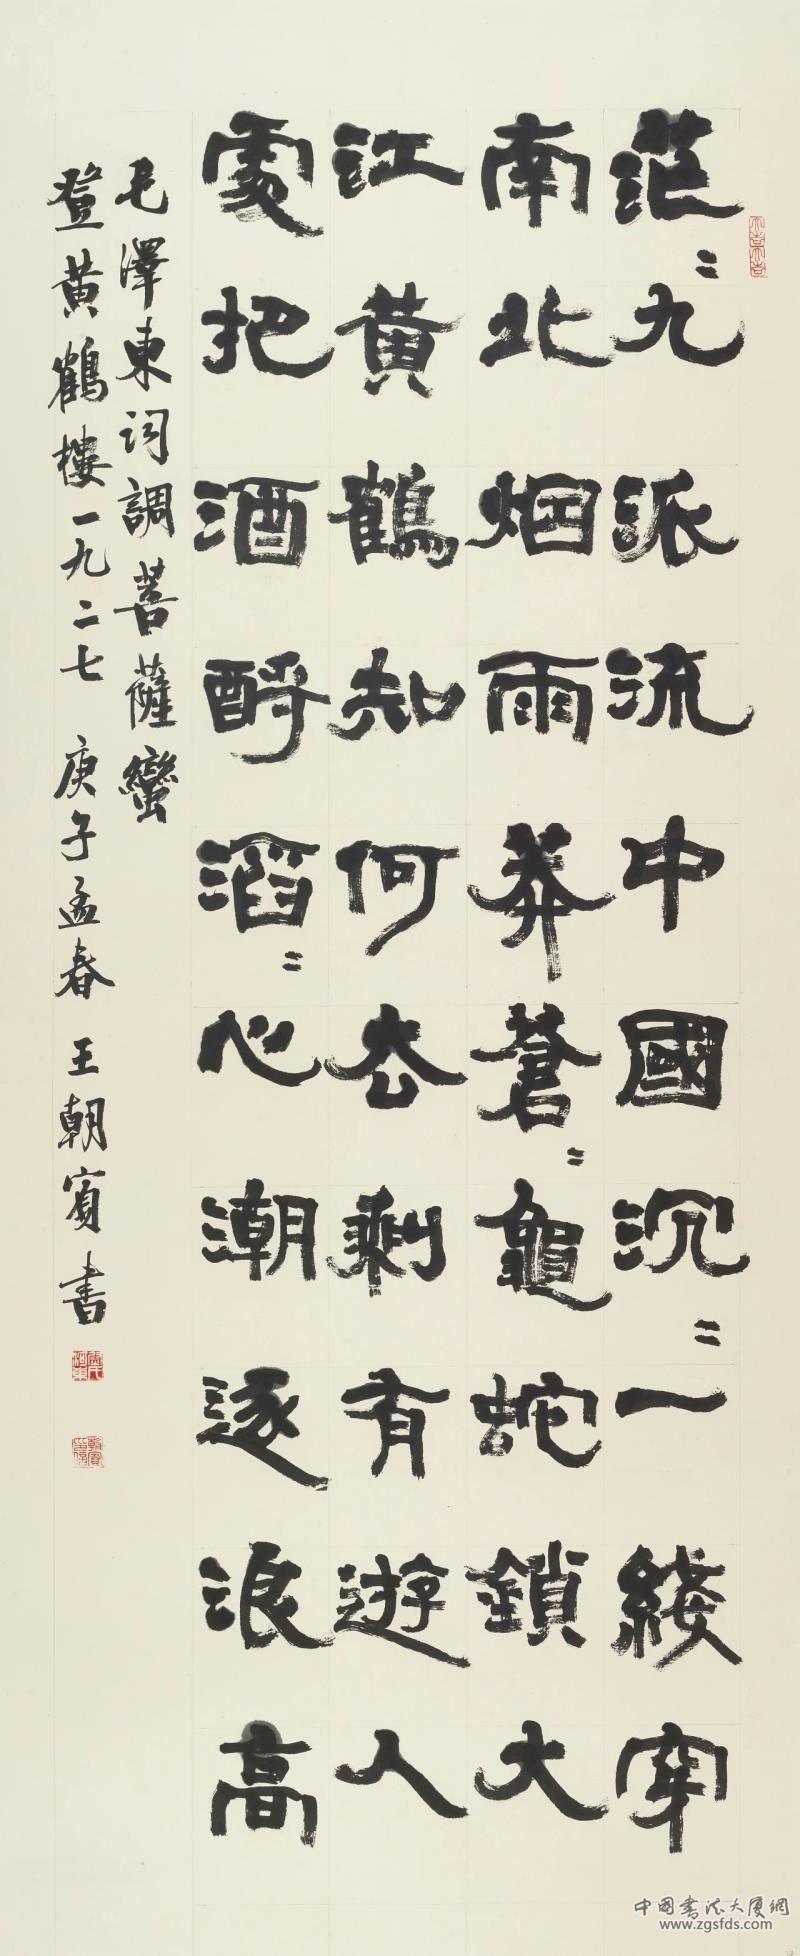 茫〻九派流中國沉〻一綫穿
南北烟雨莽蒼〻龜蛇鎖大
江黄鶴知何去剩有遊人
處把酒酹滔〻心潮逐浪高
毛澤東詞調菩薩蠻
登黄鶴樓一九二七 庚子孟春 王朝賓書
中國書法大厦網
www.zgsfds.com